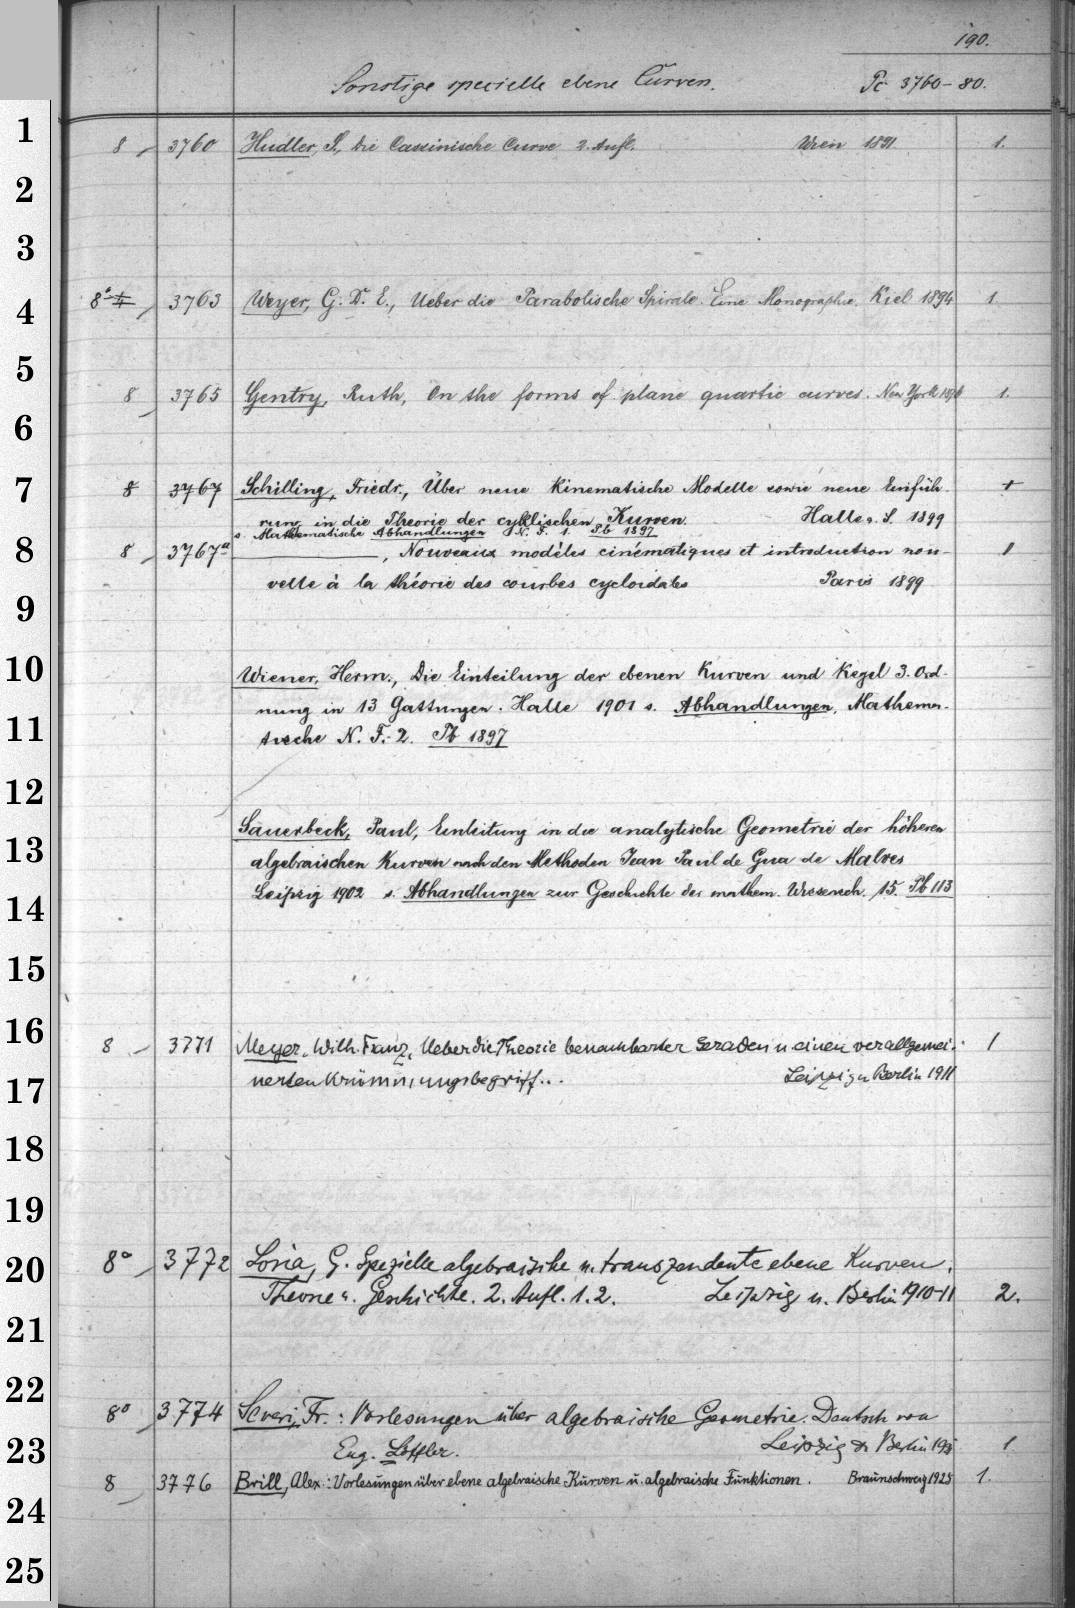 190.
Sonstige specielle ebene Curven. Pc 3760-80.
1
8 3760 Hudler, J., Die Cassinische Curve 2. Aufl. Wien 1891 1.
2
3
4
8° 4 3763 Weyer, G. D. E., Ueber die Parabolische Spirale. Eine Monographie. Kiel 1894 1.
5
8 3765 Gentry, Ruth, On the forms of plane quartic curves. New York 1896 1.
6
7
8 3767 Schilling, Friedr., Über neue Kinematische Modelle sowie neue Einfüh- 1
rung in die Theorie der cyklischen Kurven. Halle a. S. 1899
s. Mathematische Abhandlungen N. F. 1. Pb 1897
8
8 3767a ———, Nouveaux modèles cinématiques et introduction nou- 1
velle à la théorie des courbes cycloïdales Paris 1899
9
10
Wiener, Herm., Die Einteilung der ebenen Kurven und Kegel 3. Ord-
nung in 13 Gattungen. Halle 1901 s. Abhandlungen, Mathema-
11
tische N. F. 2. Pb 1897
12
Sauerbeck, Paul, Einleitung in die analytische Geometrie der höheren
13
algebraischen Kurven nach den Methoden Jean Paul de Gua de Malves
Leipzig 1902 s. Abhandlungen zur Geschichte der mathem. Wissensch. 15. Pb 113
14
15
16
8 3771 Meyer, Wilh. Franz, Ueber die Theorie benachbarter Geraden u. einen verallgemei- 1
nerten Krümmungsbegriff... Leipzig u Berlin 1911
17
18
19
20
8° 3772 Loria, G. Spezielle algebraische u. transzendente ebene Kurven,
Theorie u. Geschichte. 2. Aufl. 1. 2. Leipzig u. Berlin 1910-11 2.
21
22
8° 3774 Severi, Fr.: Vorlesungen über algebraische Geometrie. Deutsch von
23
Eug. Löffler. Leipzig & Berlin 1
8 3776 Brill, Alex.: Vorlesungen über ebene algebraische Kurven u. algebraische Funktionen. Braunschweig 1925 1.
24
25